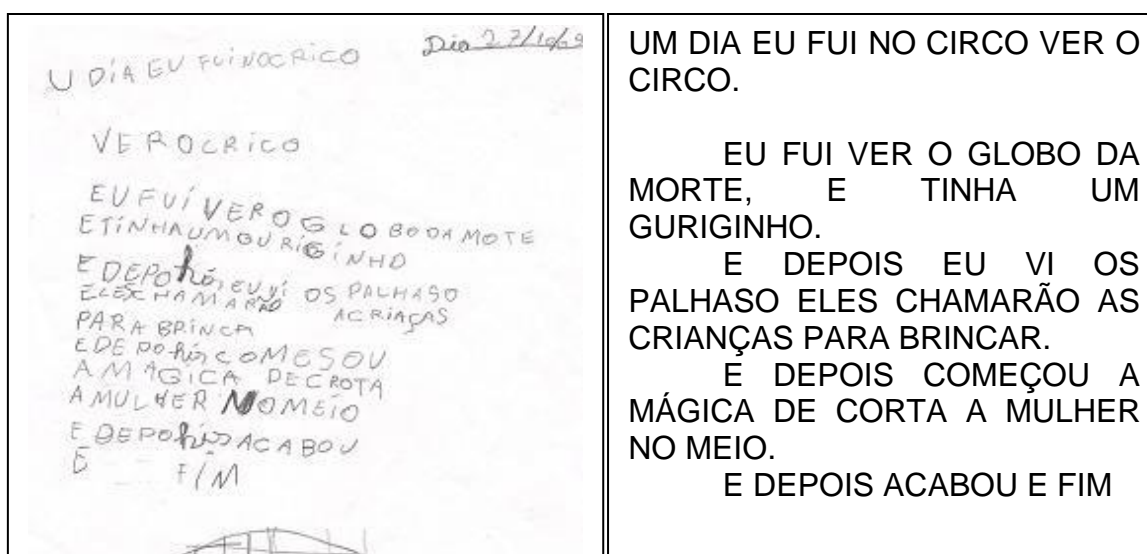 Dia 27/10/09
U DIA EU FUINOCRICO
VEROCRICO
EU FUI VEROGLOBODAMOTE
ETINHAUMGURIGINHO
E DEPOhis EU VI OS PALHASO
ELEXHAMARÃO ACRIAÇAS
PARA BRINCA
EDEPOhis COMESOU
AMAGICA DECROTA
AMULHER NOMEIO
E DEPOhis ACABOU
E FIM
UM DIA EU FUI NO CIRCO VER O
CIRCO.
EU FUI VER O GLOBO DA
MORTE, E TINHA UM
GURIGINHO.
E DEPOIS EU VI OS
PALHASO ELES CHAMARÃO AS
CRIANÇAS PARA BRINCAR.
E DEPOIS COMEÇOU A
MÁGICA DE CORTA A MULHER
NO MEIO.
E DEPOIS ACABOU E FIM